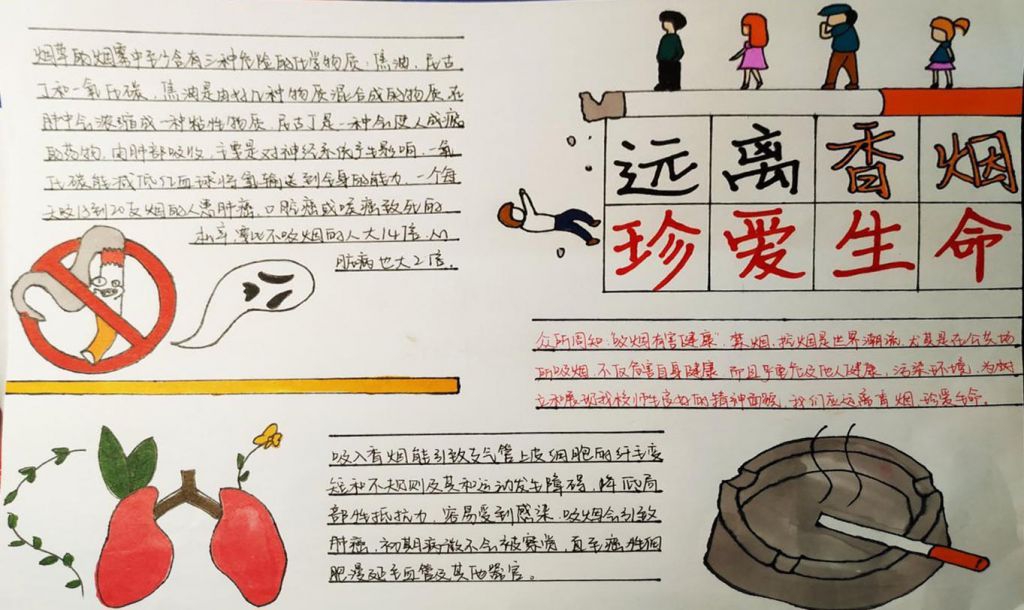 烟草的烟雾中至少含有三种危险的化学物质：焦油，尼古
丁和一氧化碳，焦油是由好几种物质混合成的物质，在
肺中会浓缩成一种粘性物质，尼古丁是一种会使人成瘾
的药物，由肺部吸收，主要是对神经系统产生影响，一氧
化碳能减低红血球将氧输送到全身的能力，一个每
天吸15到20支烟的人患肺癌，口腔癌或喉癌致死的
概率，要比不吸烟的人大14倍，心
脏病也大2倍。
远离香烟
珍爱生命
众所周知，"吸烟有害健康"，禁烟、控烟是世界潮流，尤其是在公共场
所吸烟，不仅危害自身健康，而且严重危及他人健康，污染环境，为树
立和展现我校师生良好的精神面貌，我们应远离香烟，珍爱生命。
吸入香烟能引致支气管上皮细胞的纤毛变
短和不规则及其和运动发生障碍，降低局
部性抵抗力，容易受到感染，吸烟会引致
肺癌，初期病徵不会被察觉，直至癌性细
胞漫延至血管及其他器官。